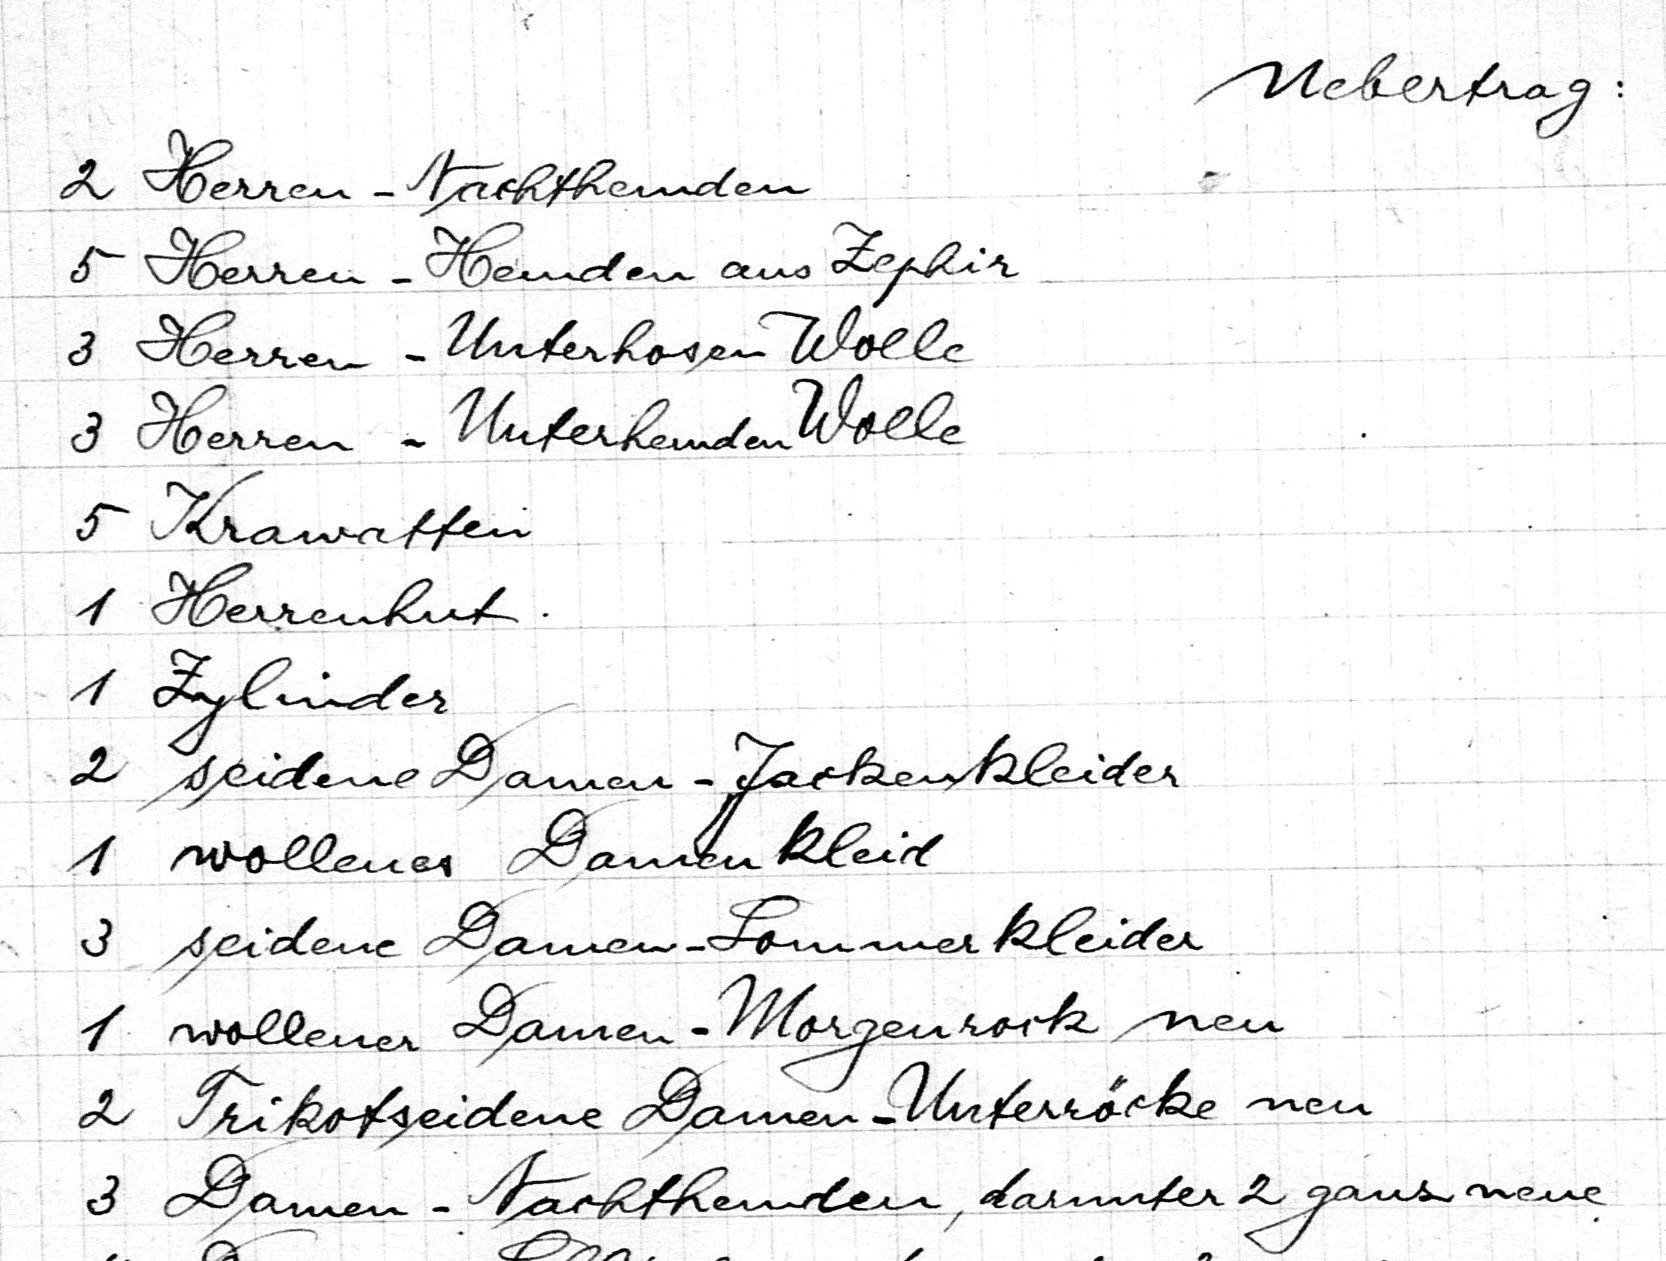 Uebertrag:
2 Herren - Nachthemden
5 Herren - Hemden aus Zephir
3 Herren - Unterhosen Wolle
3 Herren - Unterhemden Wolle
5 Krawatten
1 Herrenhut.
1 Zylinder
2 seidene Damen - Jackenkleider
1 wollenes Damenkleid
3 seidene Damen - Sommerkleider
1 wollener Damen - Morgenrock neu
2 Trikotseidene Damen - Unterröcke neu
3 Damen - Nachthemden, darunter 2 ganz neue